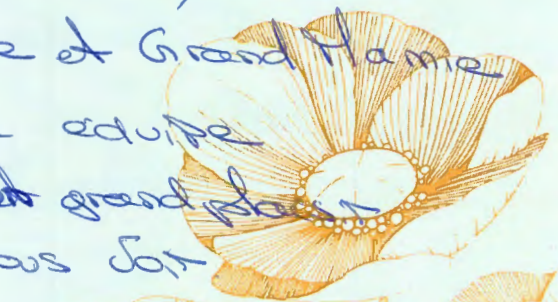 e et Grand Mamie
équipe
grand plaisir
ous voir